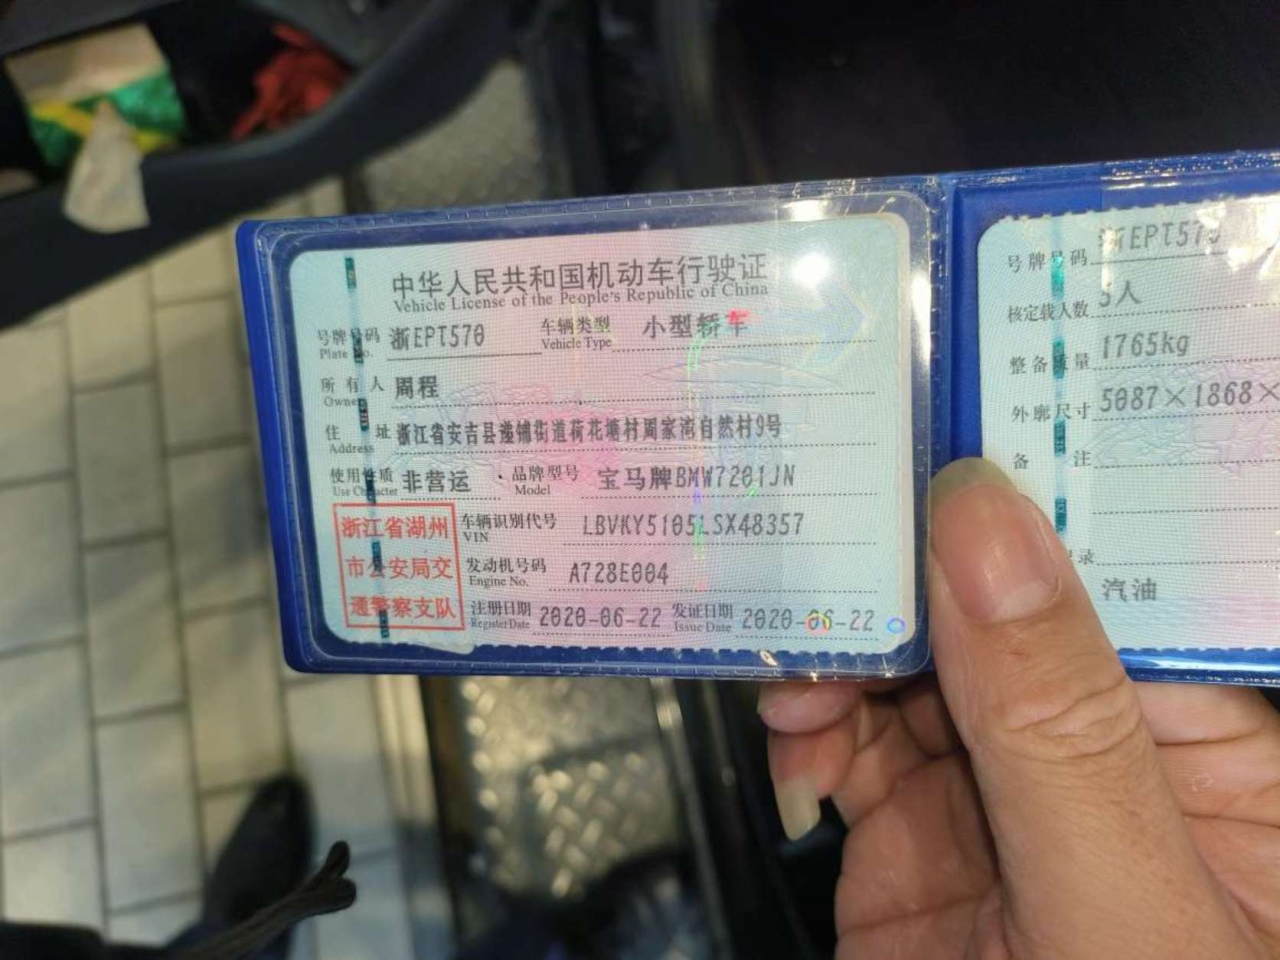 中华人民共和国机动车行驶证
Vehicle License of the People's Republic of China
号牌号码 浙EPT570 车辆类型 小型轿车
Plate No. Vehicle Type
所有人 周程
Owner
住址 浙江省安吉县递铺街道荷花塘村周家湾自然村9号
Address
使用性质 非营运 品牌型号 宝马牌BMW7201JN
Use Character Model
浙江省湖州
市公安局交
通警察支队
车辆识别代号 LBVKY5105LSX48357
VIN
发动机号码 A728E004
Engine No.
注册日期 2020-06-22 发证日期 2020-06-22
Register Date Issue Date
号牌号码 浙EPT570
核定载人数 5人
整备质量 1765kg
外廓尺寸 5087×1868×
备注
录
汽油